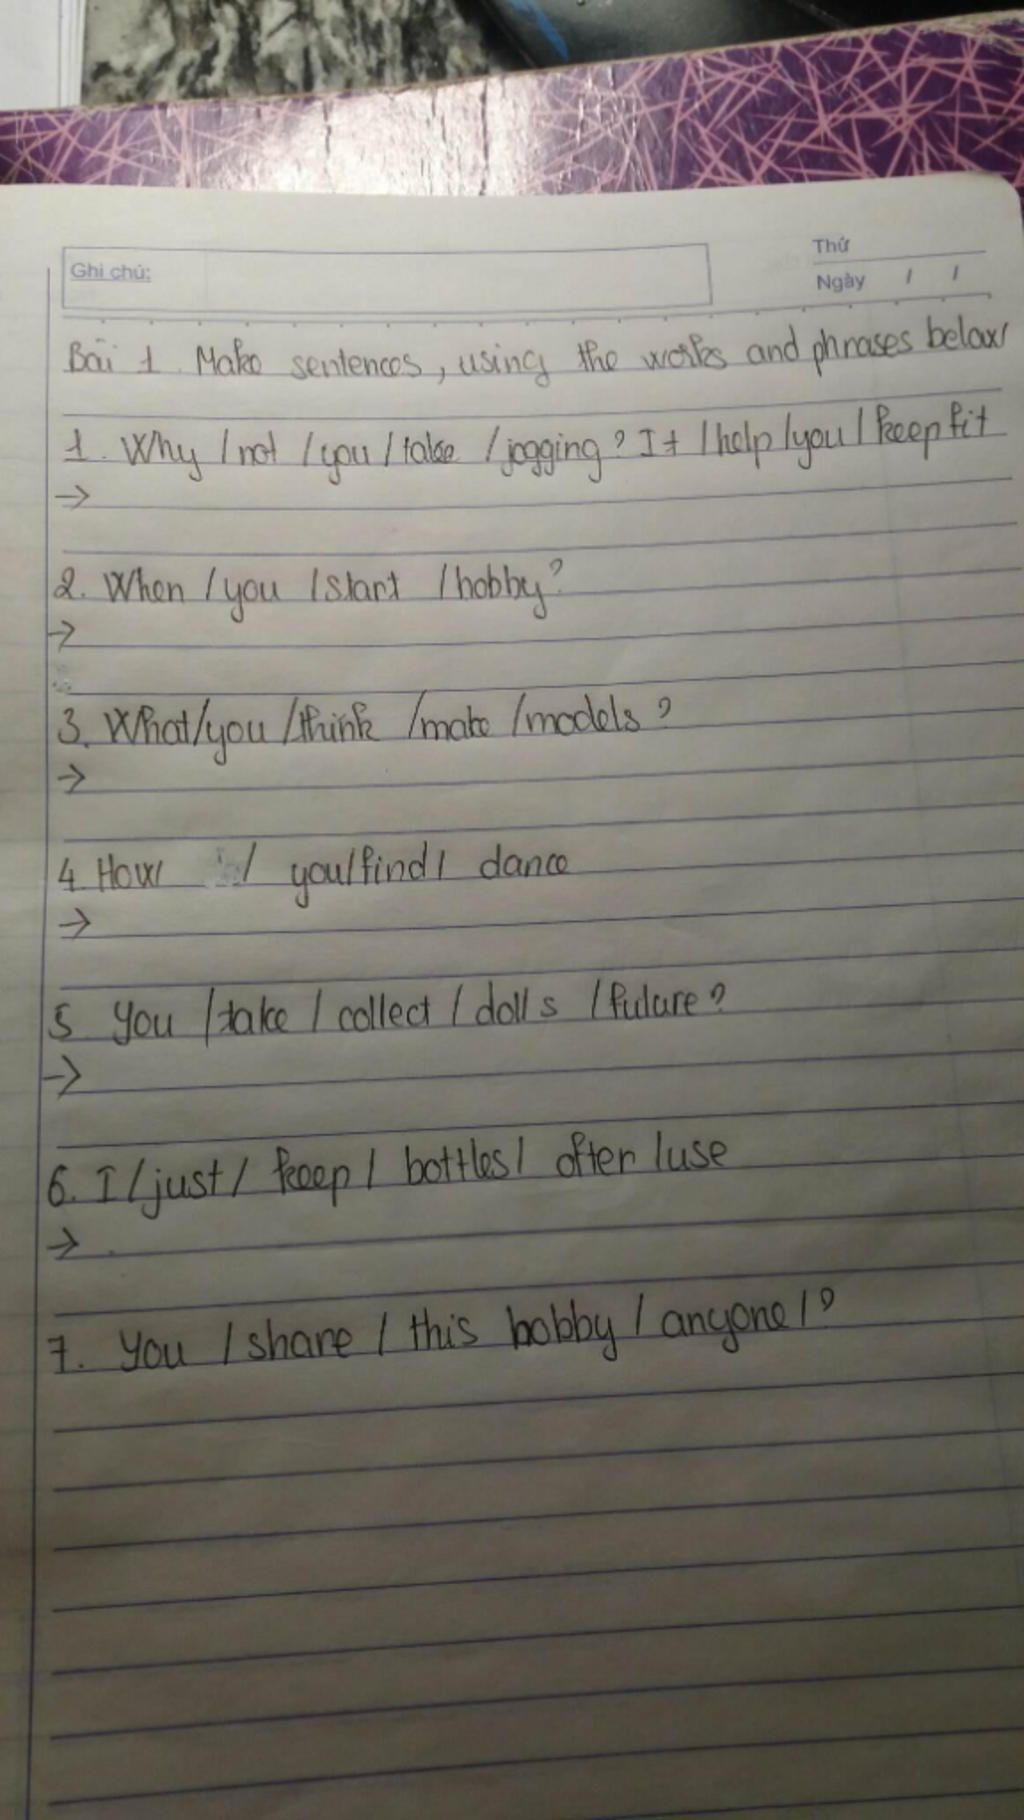 Ghi chú:
Thứ
Ngày / /
Bài 1. Make sentences, using the works and phrases below
1. Why / not / you / take / jogging? It / help / you / keep fit
→
2. When / you / start / hobby?
→
3. What / you / think / make / models?
→
4. How / you / find / dance
→
5. You / take / collect / dolls / future?
→
6. I / just / keep / bottles / after / use
→
7. You / share / this hobby / anyone / ?